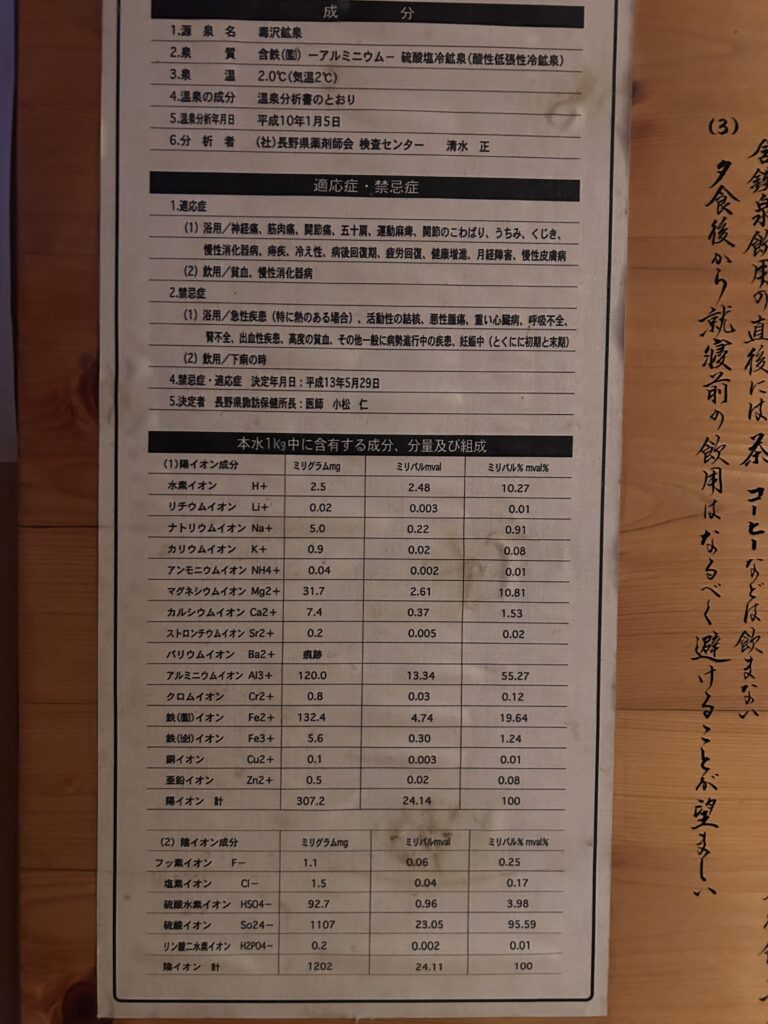 成 分
1.源 泉 名 毒沢鉱泉
2.泉 質 含鉄(Ⅱ) −アルミニウム− 硫酸塩冷鉱泉(酸性低張性冷鉱泉)
3.泉 温 2.0℃(気温2℃)
4.温泉の成分 温泉分析書のとおり
5.温泉分析年月日 平成10年1月5日
6.分 析 者 (社)長野県薬剤師会 検査センター 清水 正
適応症・禁忌症
1.適応症
(1) 浴用/神経痛、筋肉痛、関節痛、五十肩、運動麻痺、関節のこわばり、うちみ、くじき、
慢性消化器病、痔疾、冷え性、病後回復期、疲労回復、健康増進、月経障害、慢性皮膚病
(2) 飲用/貧血、慢性消化器病
2.禁忌症
(1) 浴用/急性疾患(特に熱のある場合)、活動性の結核、悪性腫瘍、重い心臓病、呼吸不全、
腎不全、出血性疾患、高度の貧血、その他一般に病勢進行中の疾患、妊娠中(とくにに初期と末期)
(2) 飲用/下痢の時
4.禁忌症・適応症 決定年月日:平成13年5月29日
5.決定者 長野県諏訪保健所長:医師 小松 仁
本水1Kg中に含有する成分、分量及び組成
(1)陽イオン成分 ミリグラムmg ミリバルmval ミリバル% mval%
水素イオン H+ 2.5 2.48 10.27
リチウムイオン Li+ 0.02 0.003 0.01
ナトリウムイオン Na+ 5.0 0.22 0.91
カリウムイオン K+ 0.9 0.02 0.08
アンモニウムイオン NH4+ 0.04 0.002 0.01
マグネシウムイオン Mg2+ 31.7 2.61 10.81
カルシウムイオン Ca2+ 7.4 0.37 1.53
ストロンチウムイオン Sr2+ 0.2 0.005 0.02
バリウムイオン Ba2+ 痕跡
アルミニウムイオン Al3+ 120.0 13.34 55.27
クロムイオン Cr2+ 0.8 0.03 0.12
鉄(Ⅱ)イオン Fe2+ 132.4 4.74 19.64
鉄(Ⅲ)イオン Fe3+ 5.6 0.30 1.24
銅イオン Cu2+ 0.1 0.003 0.01
亜鉛イオン Zn2+ 0.5 0.02 0.08
陽イオン 計 307.2 24.14 100
(2) 陰イオン成分 ミリグラムmg ミリバルmval ミリバル% mval%
フッ素イオン F− 1.1 0.06 0.25
塩素イオン Cl− 1.5 0.04 0.17
硫酸水素イオン HSO4− 92.7 0.96 3.98
硫酸イオン So24− 1107 23.05 95.59
リン酸二水素イオン H2PO4− 0.2 0.002 0.01
陰イオン 計 1202 24.11 100
含鉄泉飲用の直後には茶 コーヒーなどは飲まない
(3) 夕食後から就寝前の飲用はなるべく避けることが望ましい